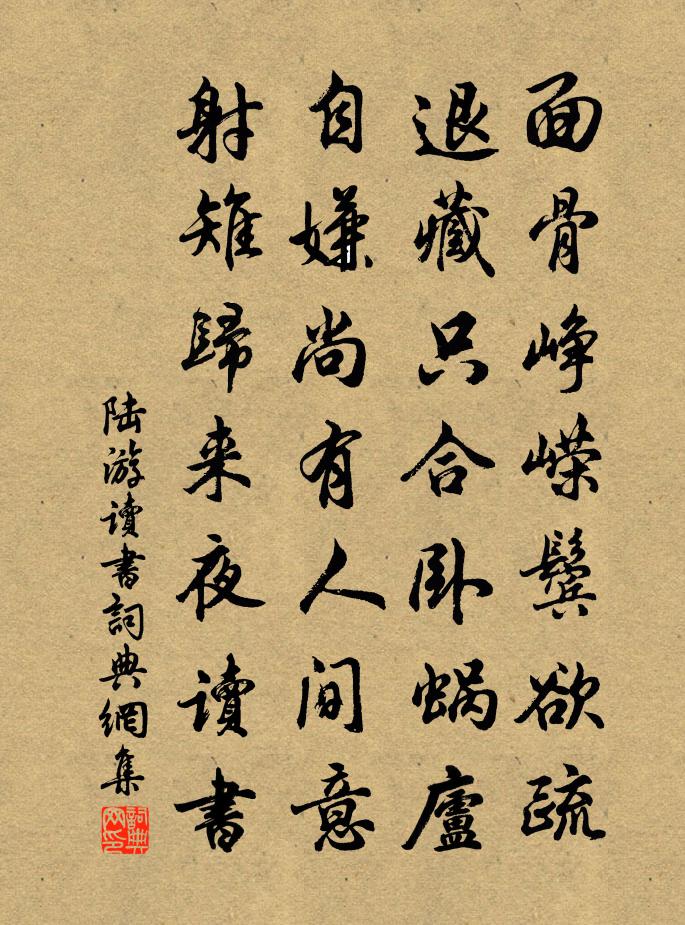 面骨峥嵘鬓欲疏
退藏只合卧蜗廬
自嫌尚有人间意
射雉歸来夜读書
陆游读書詞典網集
詞典网印